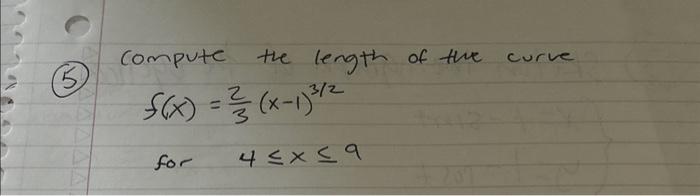 (5) compute the length of the curve
f(x) = 2/3 (x-1)^3/2
for 4 ≤ x ≤ 9